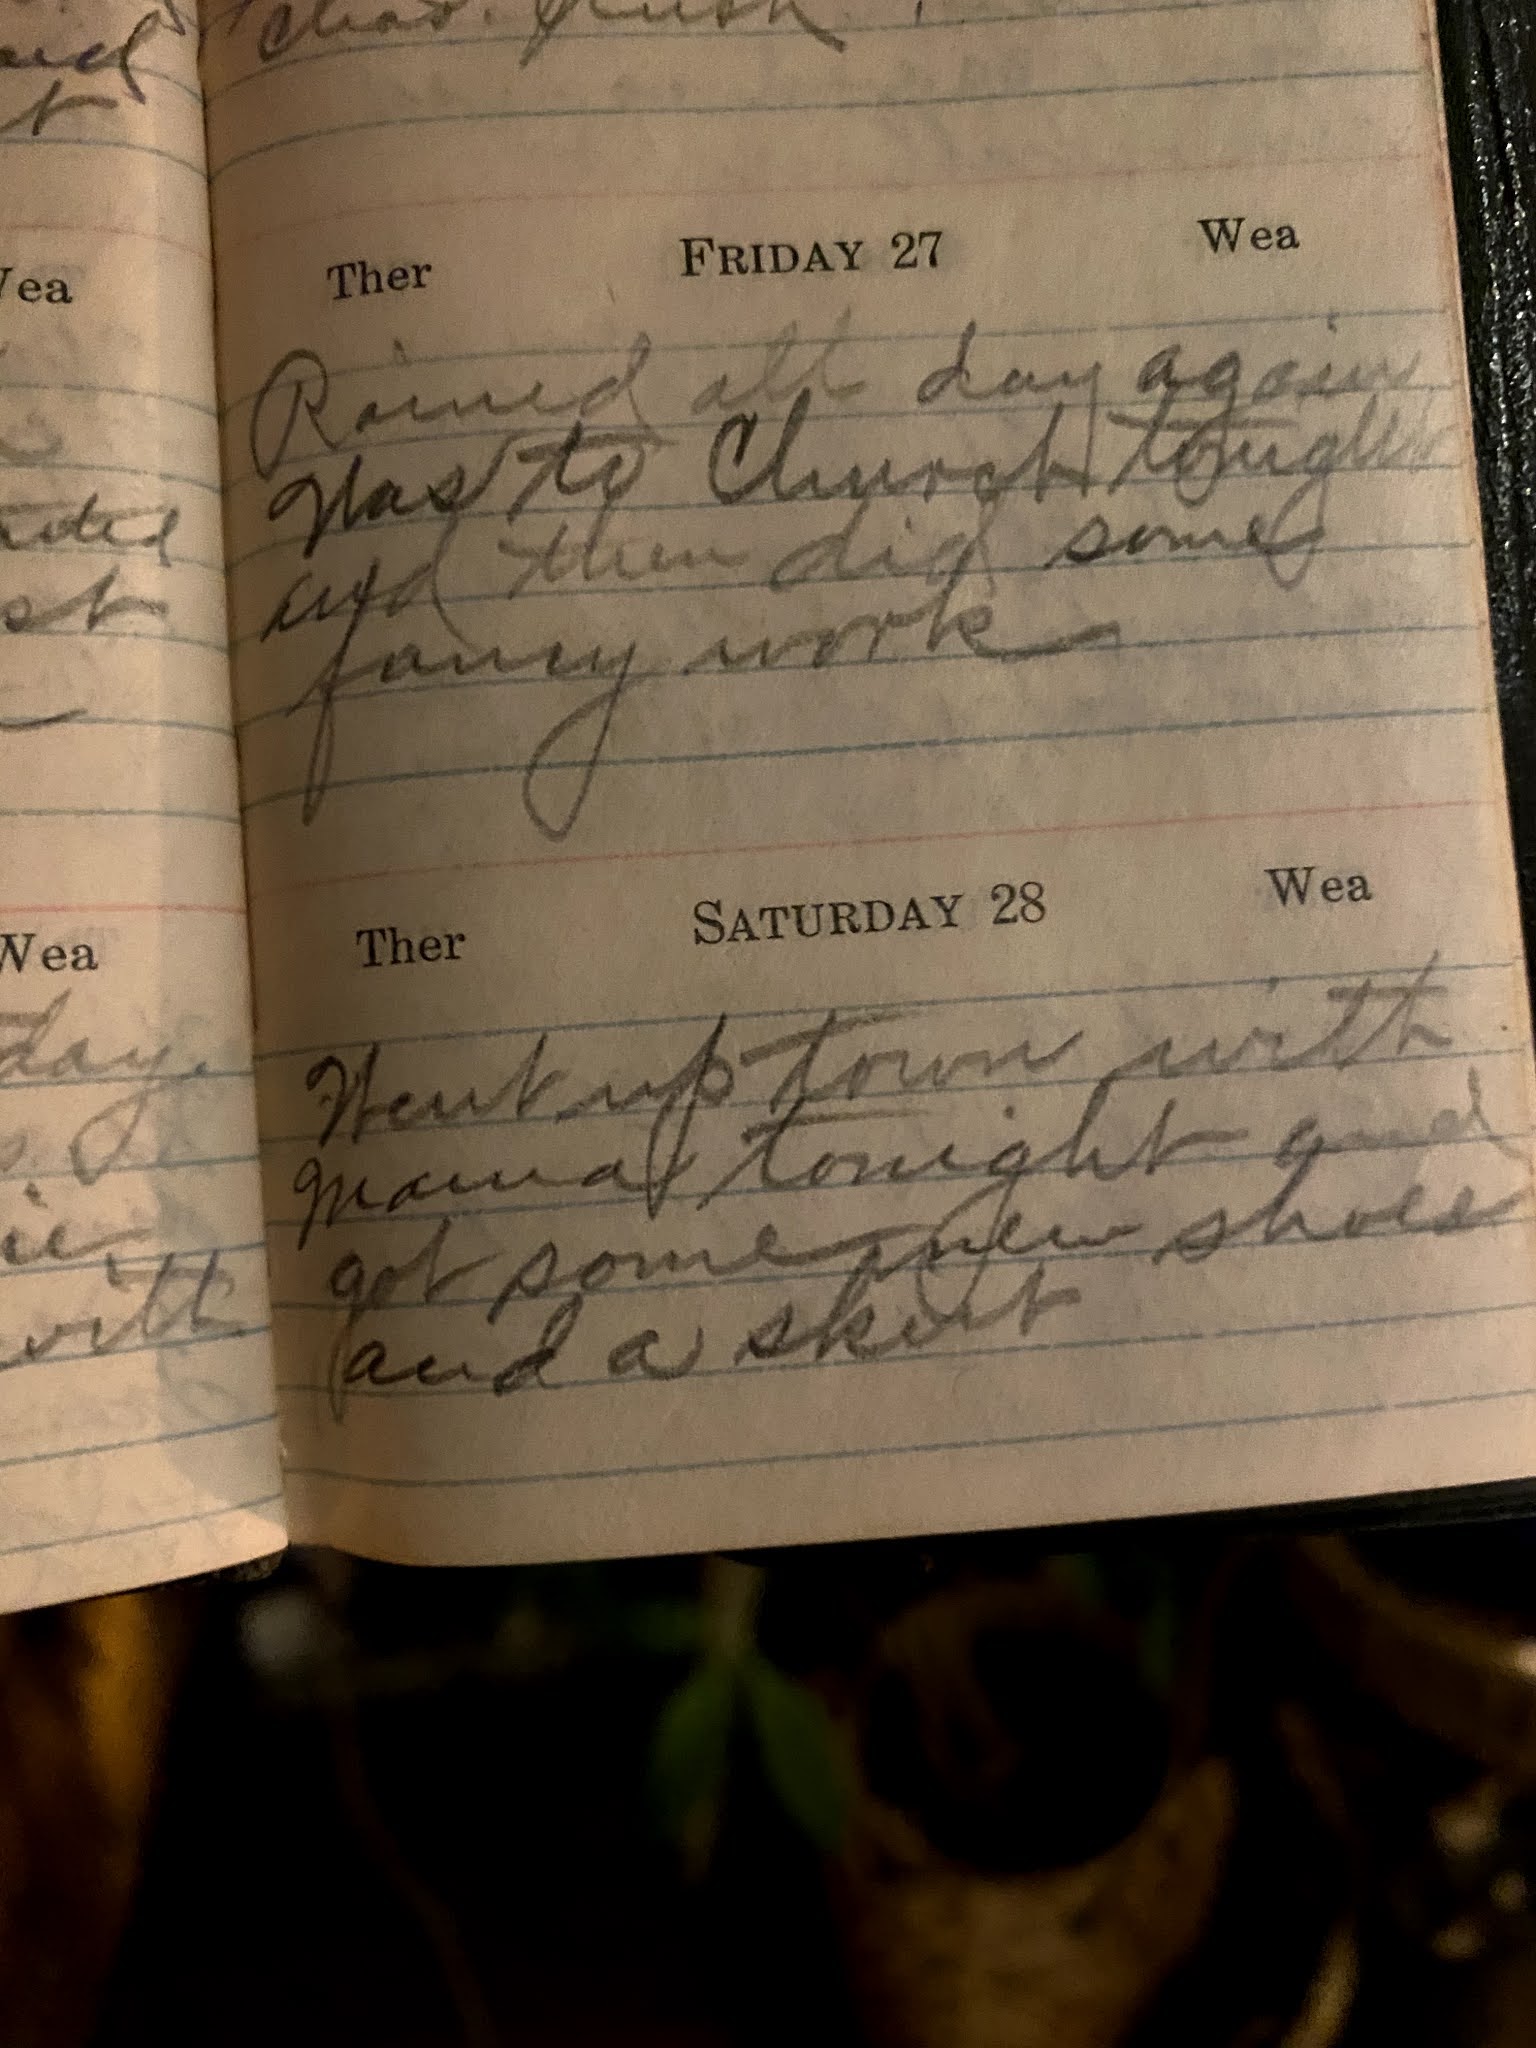 and
t
Wea
st
Wea
day.
with
Chas. Rush
Ther FRIDAY 27 Wea
Rained all day again
Was to Church tonight
and then did some
fancy work
Ther SATURDAY 28 Wea
Went up town with
mama tonight and
got some new shoes
and a skirt